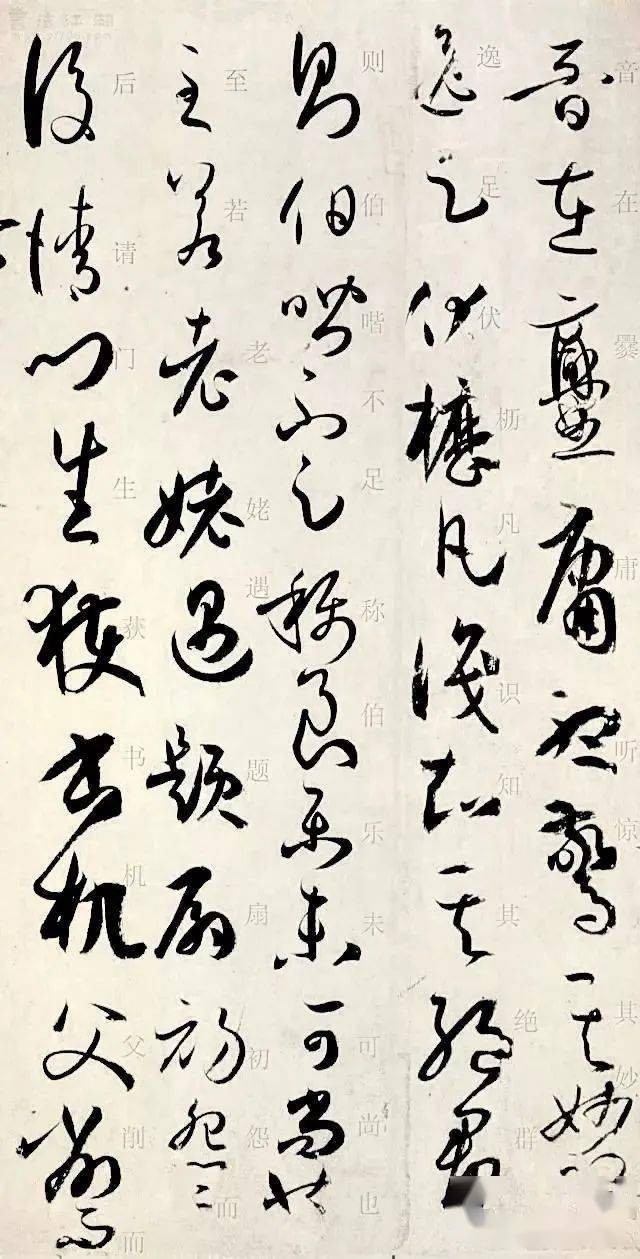 音在爨庸听惊其妙
音在爨庸聽驚其妙響
逸足伏枥凡识知其绝群
逸足伏櫪凡識知其絕群
则伯喈不足称伯乐未可尚也
則伯喈不足稱良樂未可尚也
至若老姥遇题扇初怨而
至若老姥遇題扇初怨而
后请门生获书机父削而
後請門生獲書機父削而